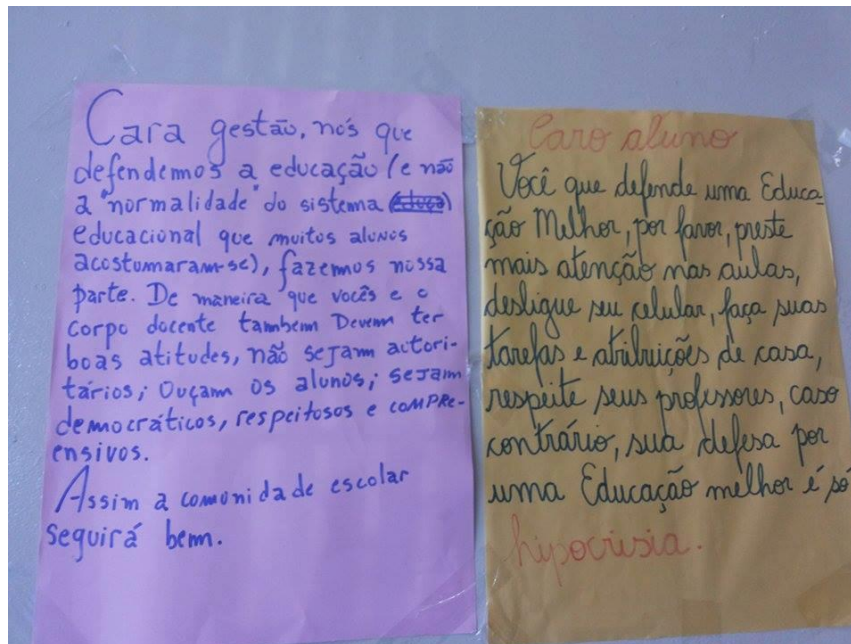 Cara gestão, nós que
defendemos a educação (e não
a "normalidade" do sistema
educacional que muitos alunos
acostumaram-se), fazemos nossa
parte. De maneira que vocês e o
corpo docente também Devem ter
boas atitudes, não sejam autori-
tários; Ouçam os alunos; sejam
democráticos, respeitosos e compre-
ensivos.
Assim a comunidade escolar
seguirá bem.
Caro aluno
Você que defende uma Educa-
ção Melhor, por favor, preste
mais atenção nas aulas,
desligue seu celular, faça suas
tarefas e atribuições de casa,
respeite seus professores, caso
contrário, sua defesa por
uma Educação melhor é só
hipocrisia.